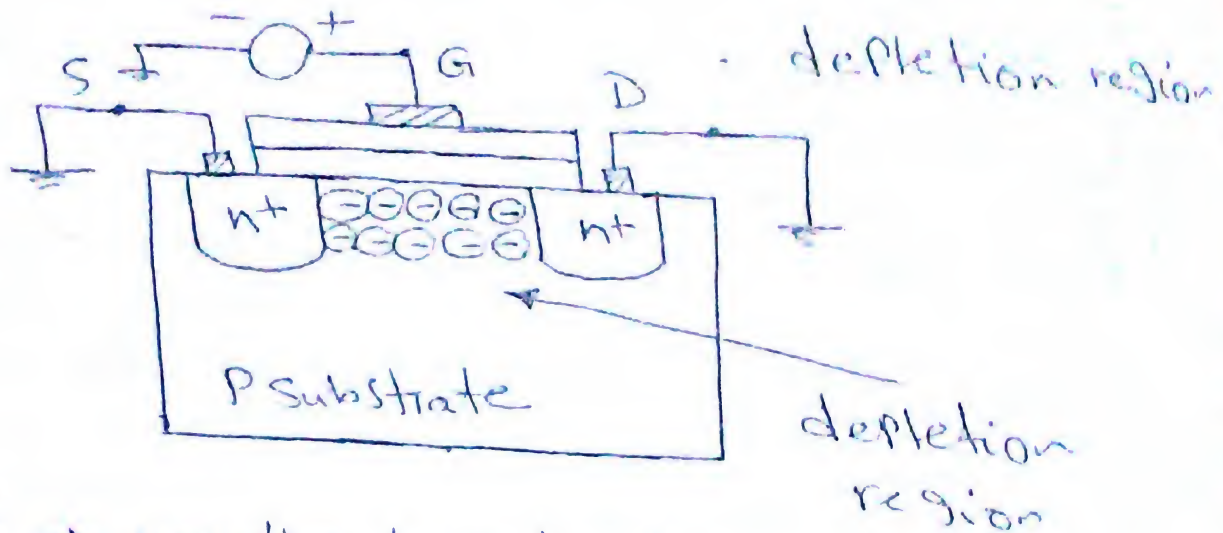 − +
S G D
depletion region
n+ ⊖⊖⊖⊖⊖ n+
⊖⊖⊖⊖⊖
P substrate
depletion
region